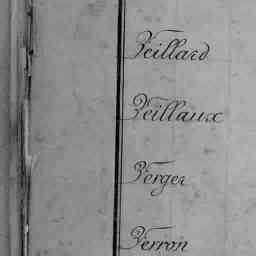 Veillard
Veillaux
Verger
Verron